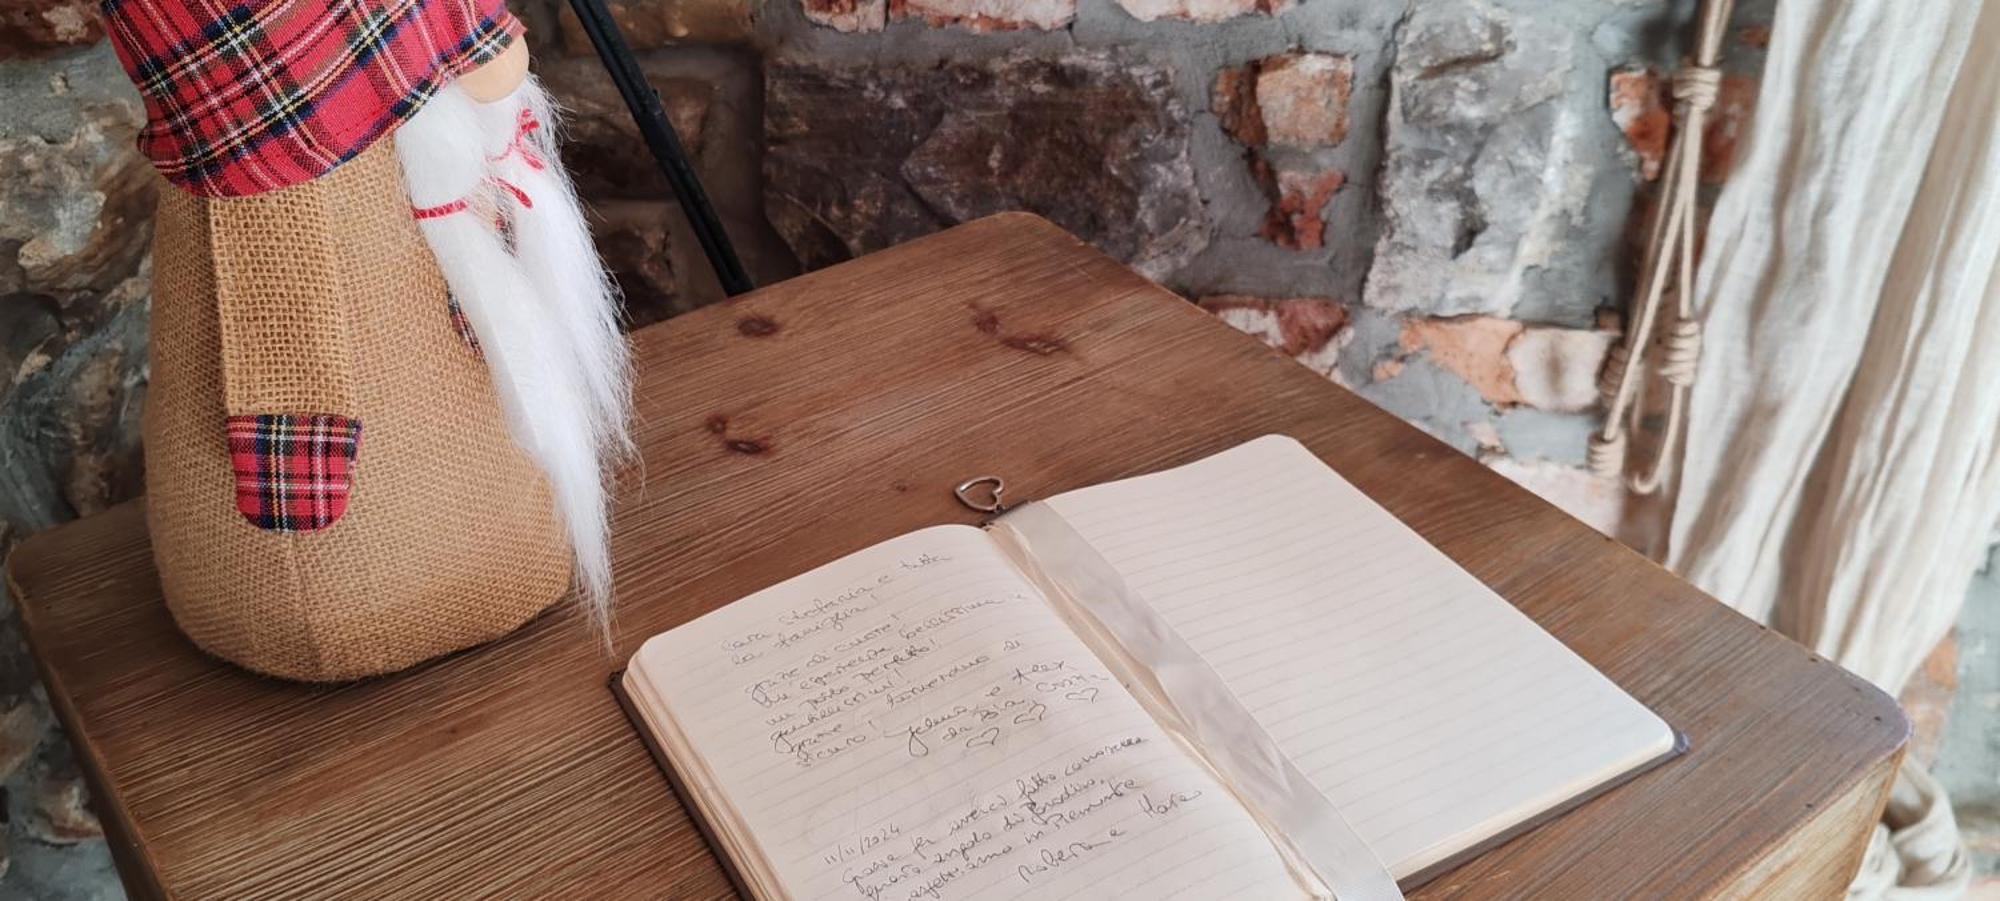 Cara Stefania e tutta
la famiglia!
grazie di cuore!
un'esperienza bellissima e
un posto perfetto!
gentilissimi!
grazie! torneremo di
sicuro! e Alex
da Bia
11/11/2024
grazie per averci fatto conoscere
questo angolo di Paradiso,
aspettiamo in Piemonte
Roberta e